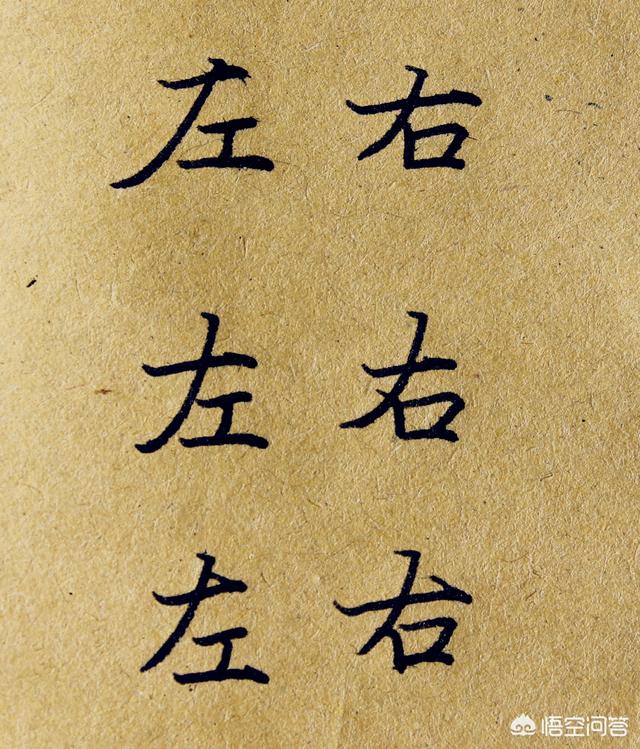 左右
左右
左右
悟空问答